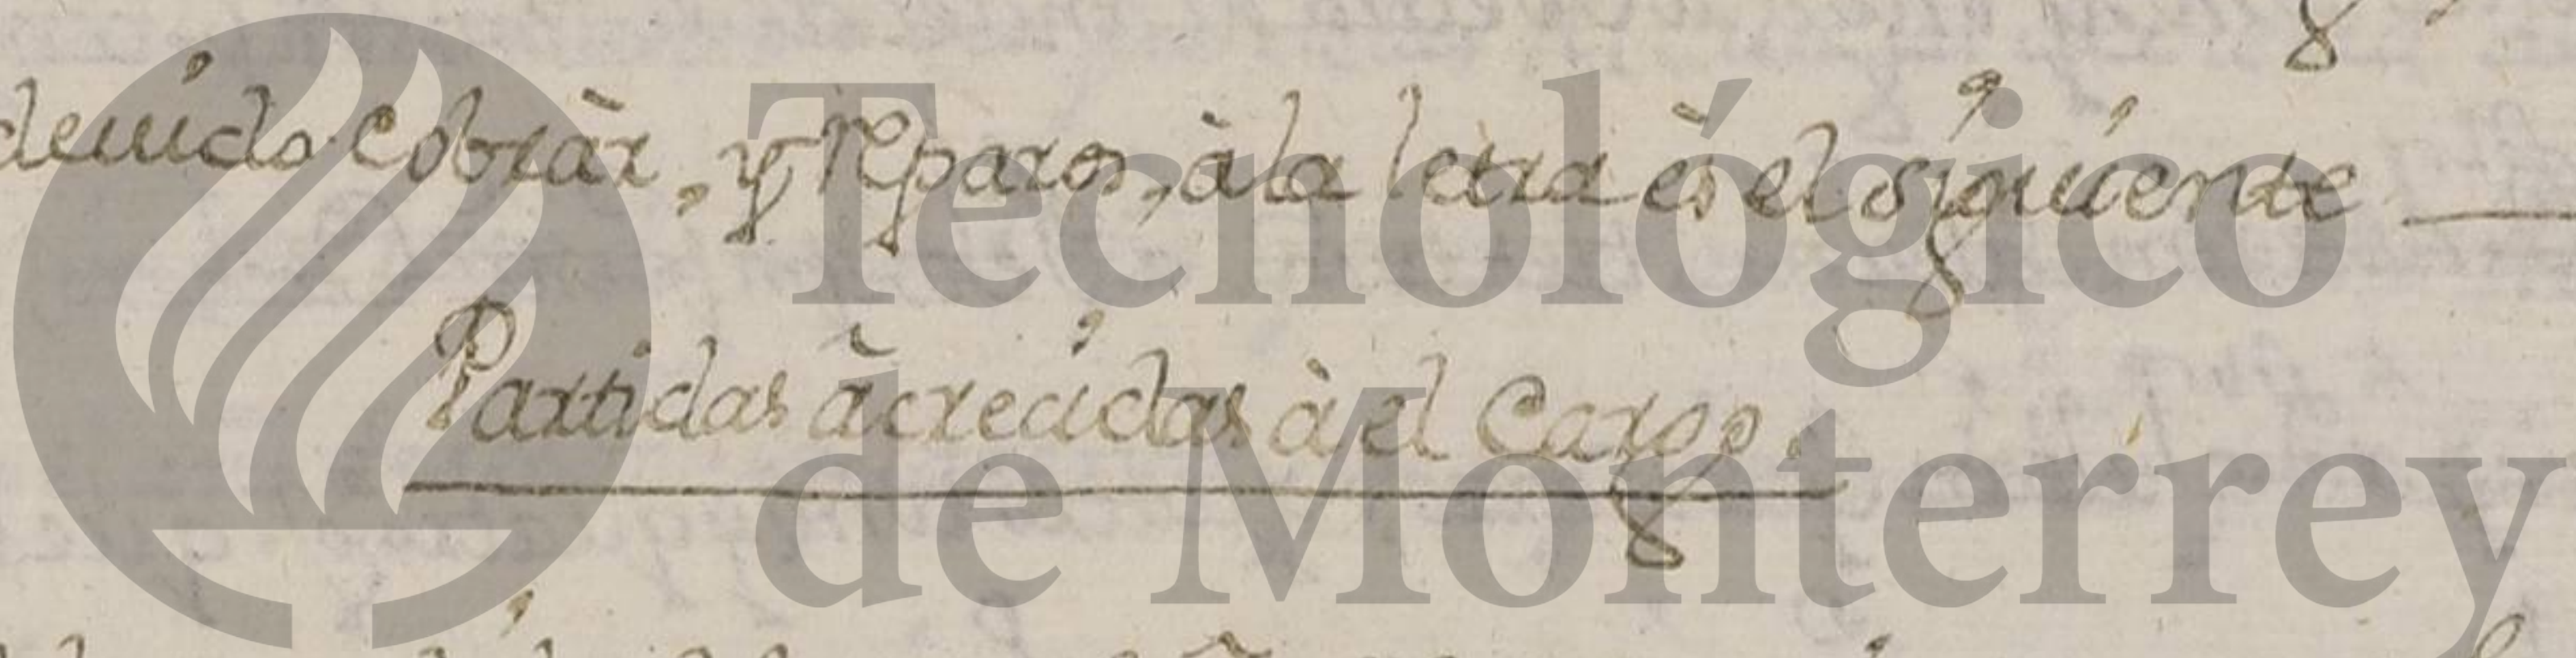 deuido Cobràr, y Reparos, à la letra ès el siguiente
Partidas àcrecidas à el Cargo.
Tecnológico
de Monterrey